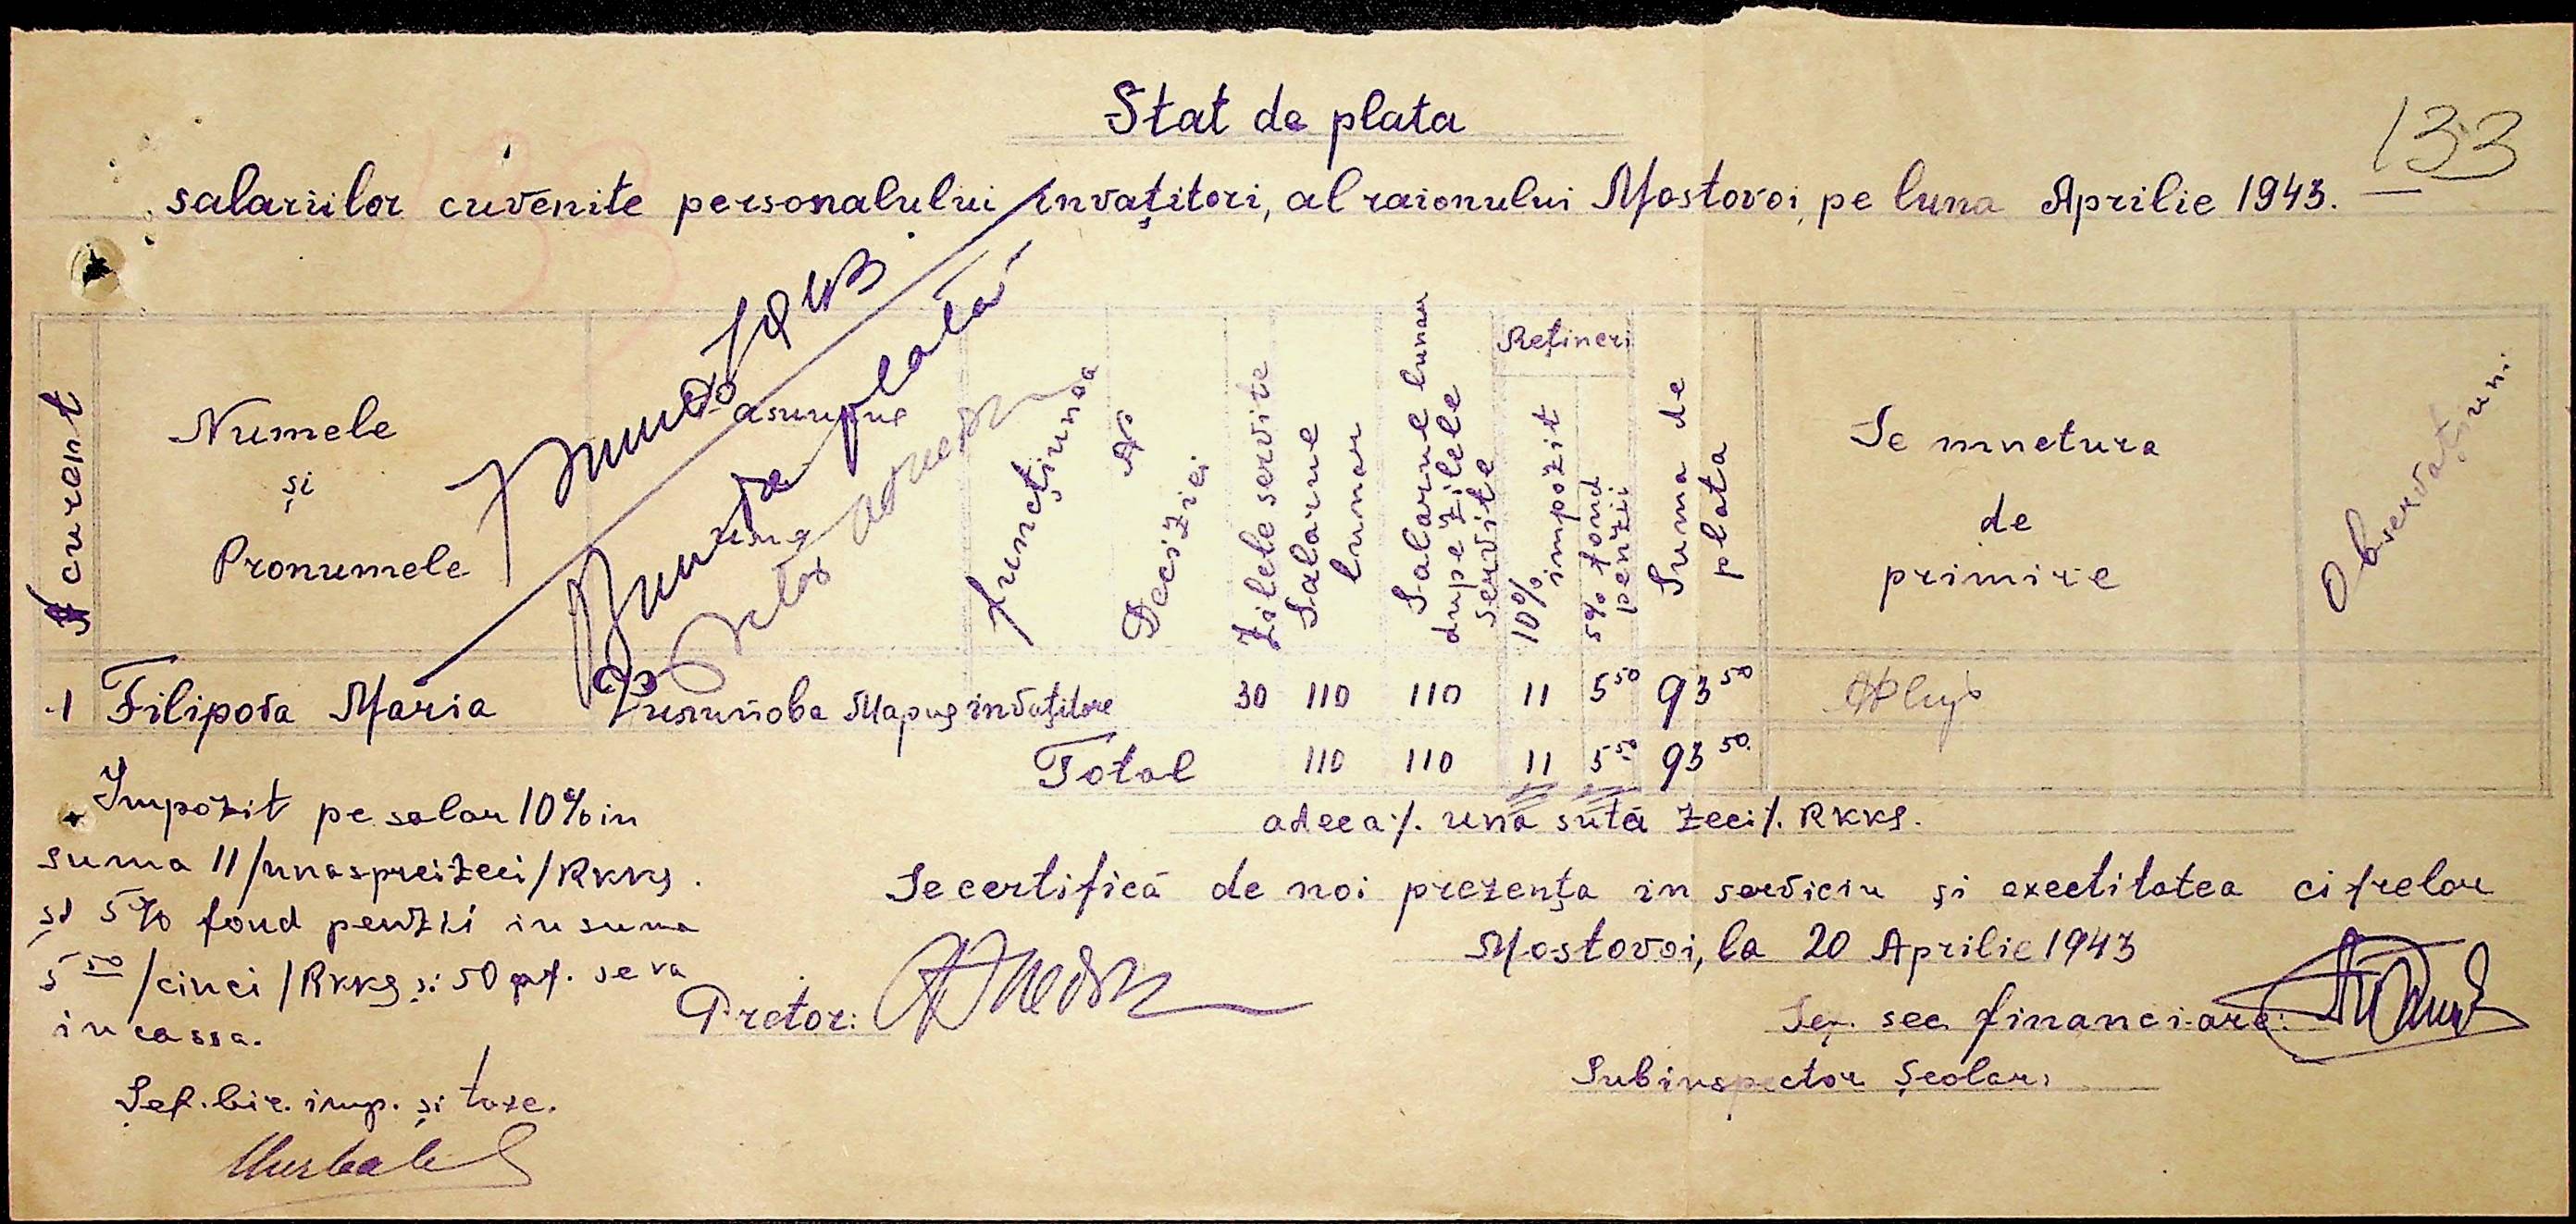 Stat de plata
133
salariilor cuvenite personalului invațitori, al raionului Mostovoi, pe luna Aprilie 1943.
1943
Bun de plată
N curent
Numele
și
Pronumele
funcțiunea
No
Deciziei
Zilele servite
Salarue
lunar
Salarue lunar
dupe zilele
servite
Rețineri
10% impozit
5% fond
penzii
Suma de
plata
Se mnetura
de
primire
Observațiuni.
1 Filipova Maria învațitore 30 110 110 11 5 50 93 50
Total 110 110 11 5 50 93 50
adeca ./. una sută zeci ./. RKKS.
Impozit pe salar 10% in
suma 11/unaspreizeci/RKKS.
și 5% fond penzii in suma
5 50 /cinci/RKKS și 50 pf. se va
incassa.
Se certifică de noi prezența in serviciu și exectitatea cifrelor
Mostovoi, la 20 Aprilie 1943
Pretor:
Șef. sec. financiare:
Subinspector Școlar:
Șef. bir. imp. și taxe.